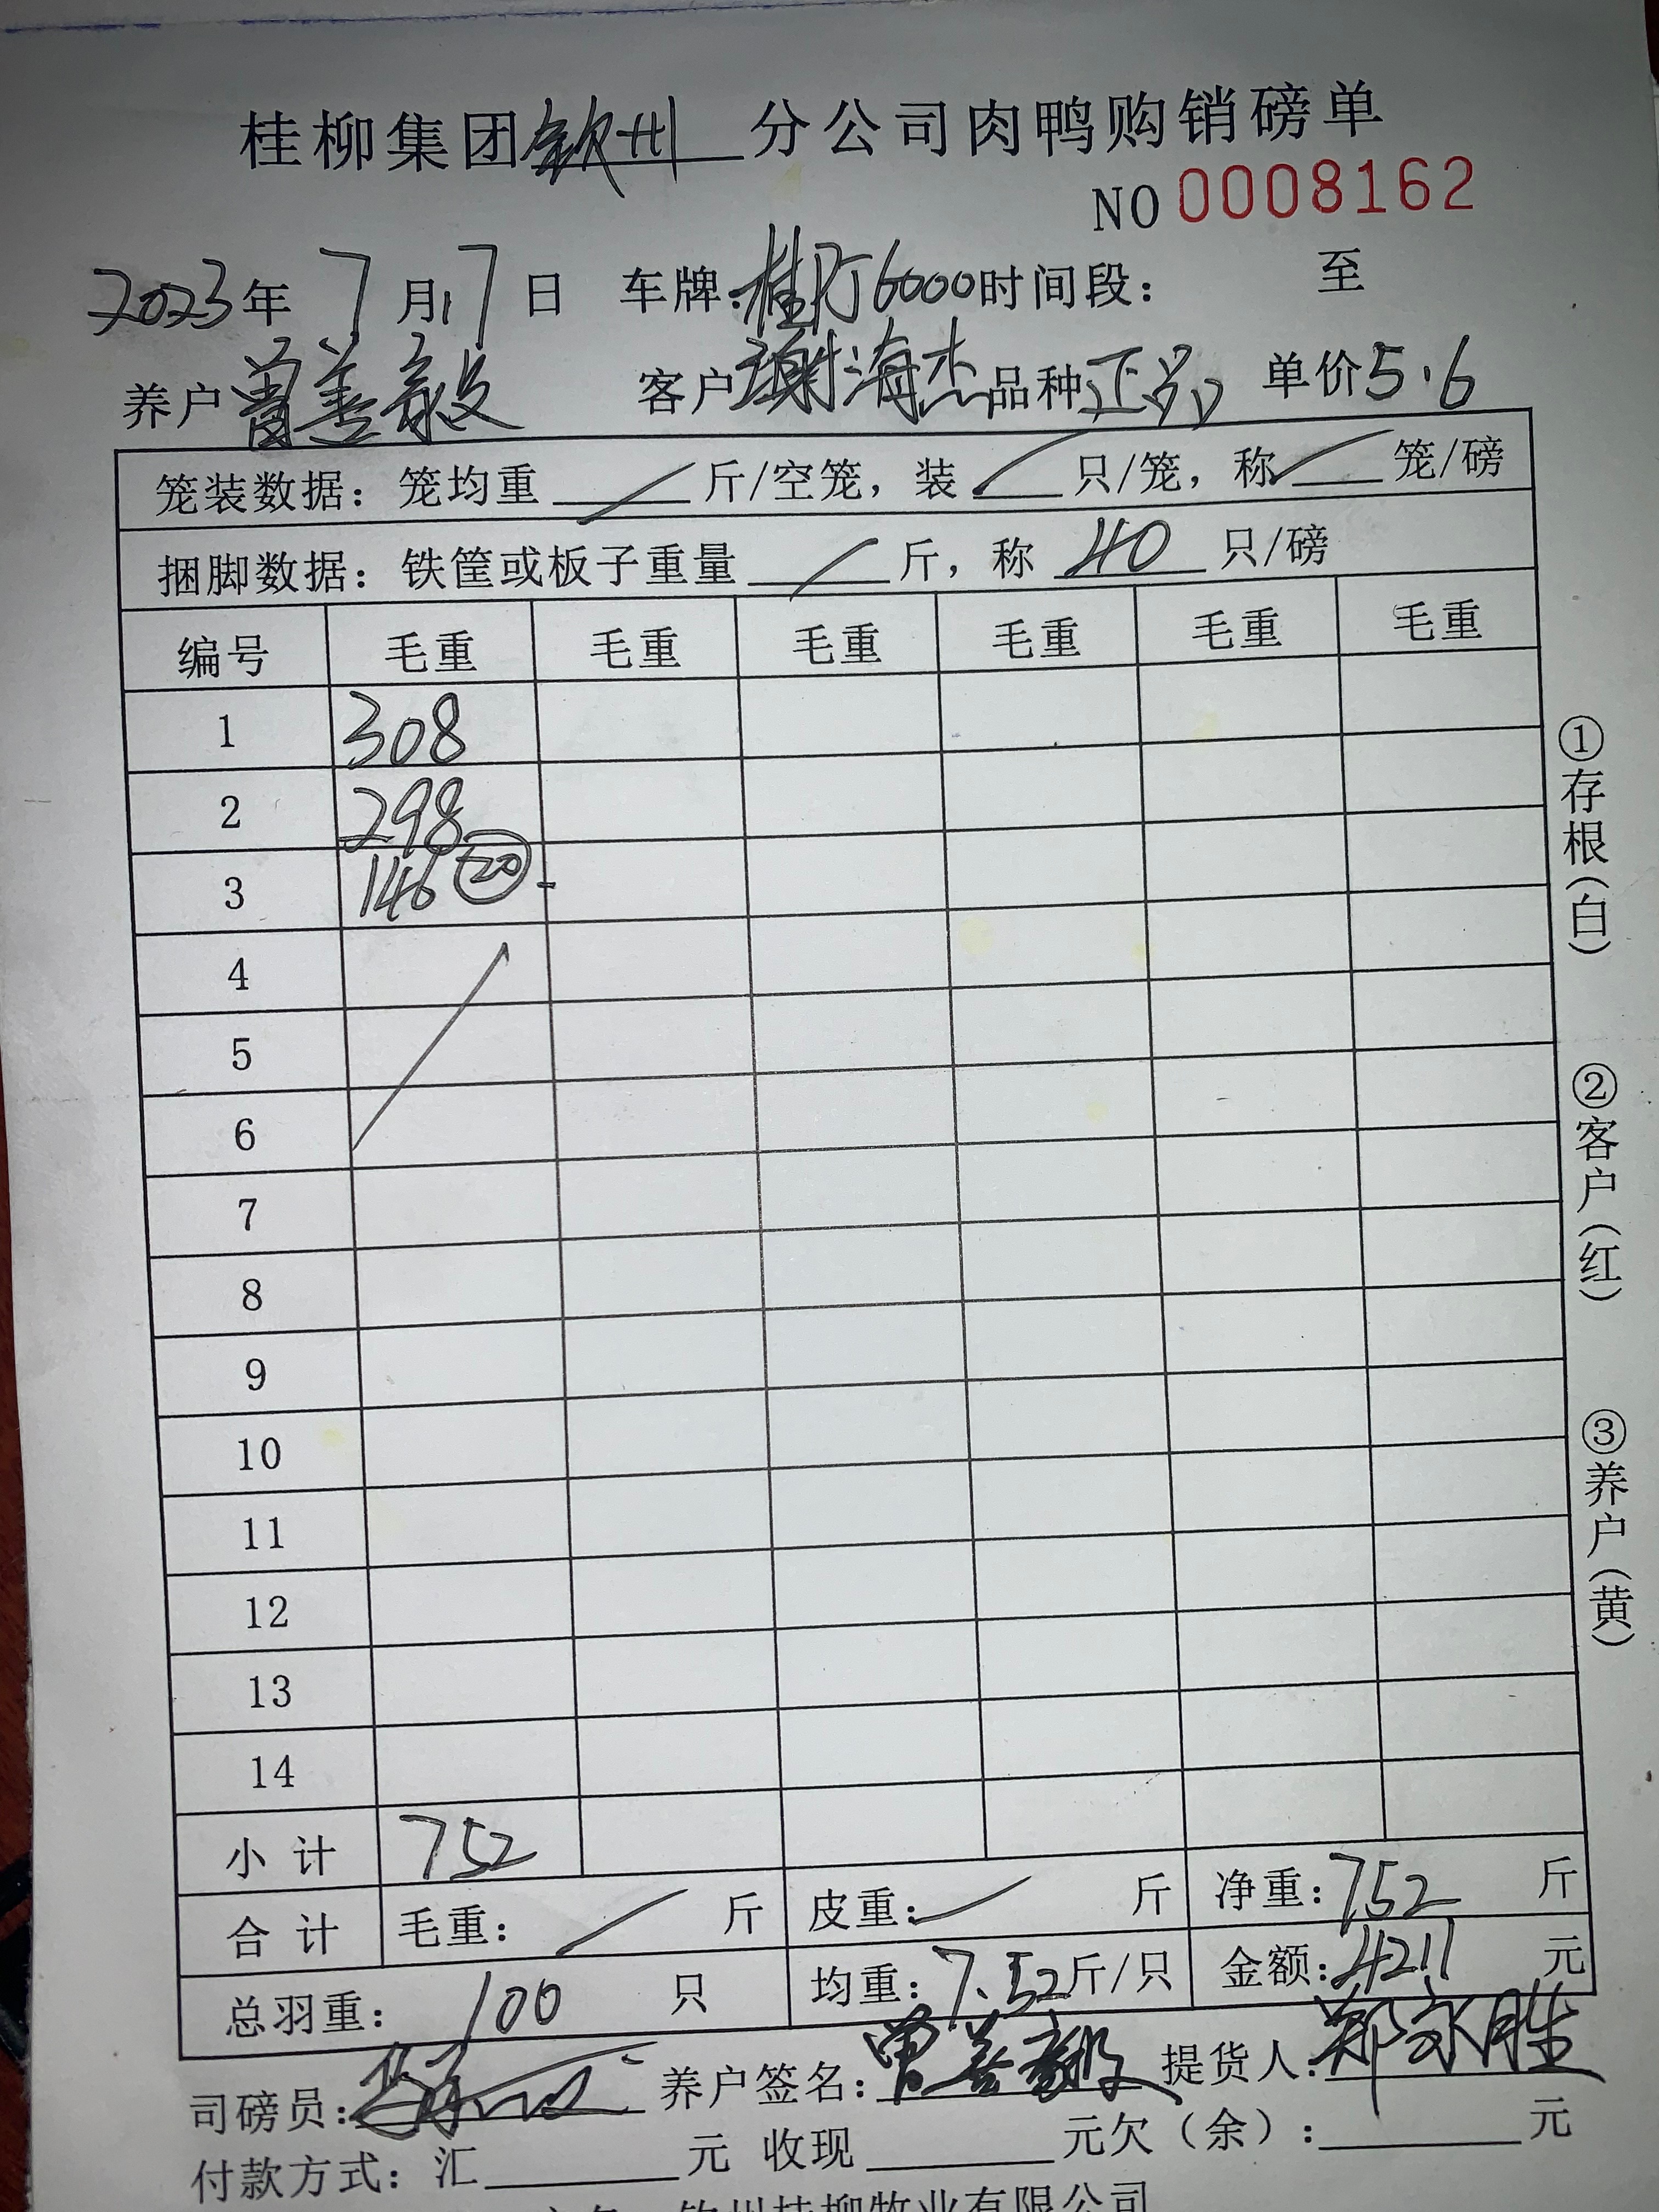 桂柳集团钦州分公司肉鸭购销磅单
NO 0008162
2023年7月17日 车牌:桂 6000时间段: 至
养户曾善毅 客户谢海杰品种正品 单价5.6
笼装数据:笼均重 / 斤/空笼,装 / 只/笼,称 / 笼/磅
捆脚数据:铁筐或板子重量 / 斤,称 40 只/磅
编号 毛重 毛重 毛重 毛重 毛重 毛重
1 308
2 298
3 146 20
4
5
6
7
8
9
10
11
12
13
14
小计 752
合计 毛重: / 斤 皮重: / 斤 净重:752 斤
总羽重: 100 只 均重:7.52斤/只 金额:4211 元
司磅员: 养户签名:曾善毅 提货人:郑永胜
付款方式:汇 元 收现 元欠(余): 元
钦州桂柳牧业有限公司
①存根(白)
②客户(红)
③养户(黄)